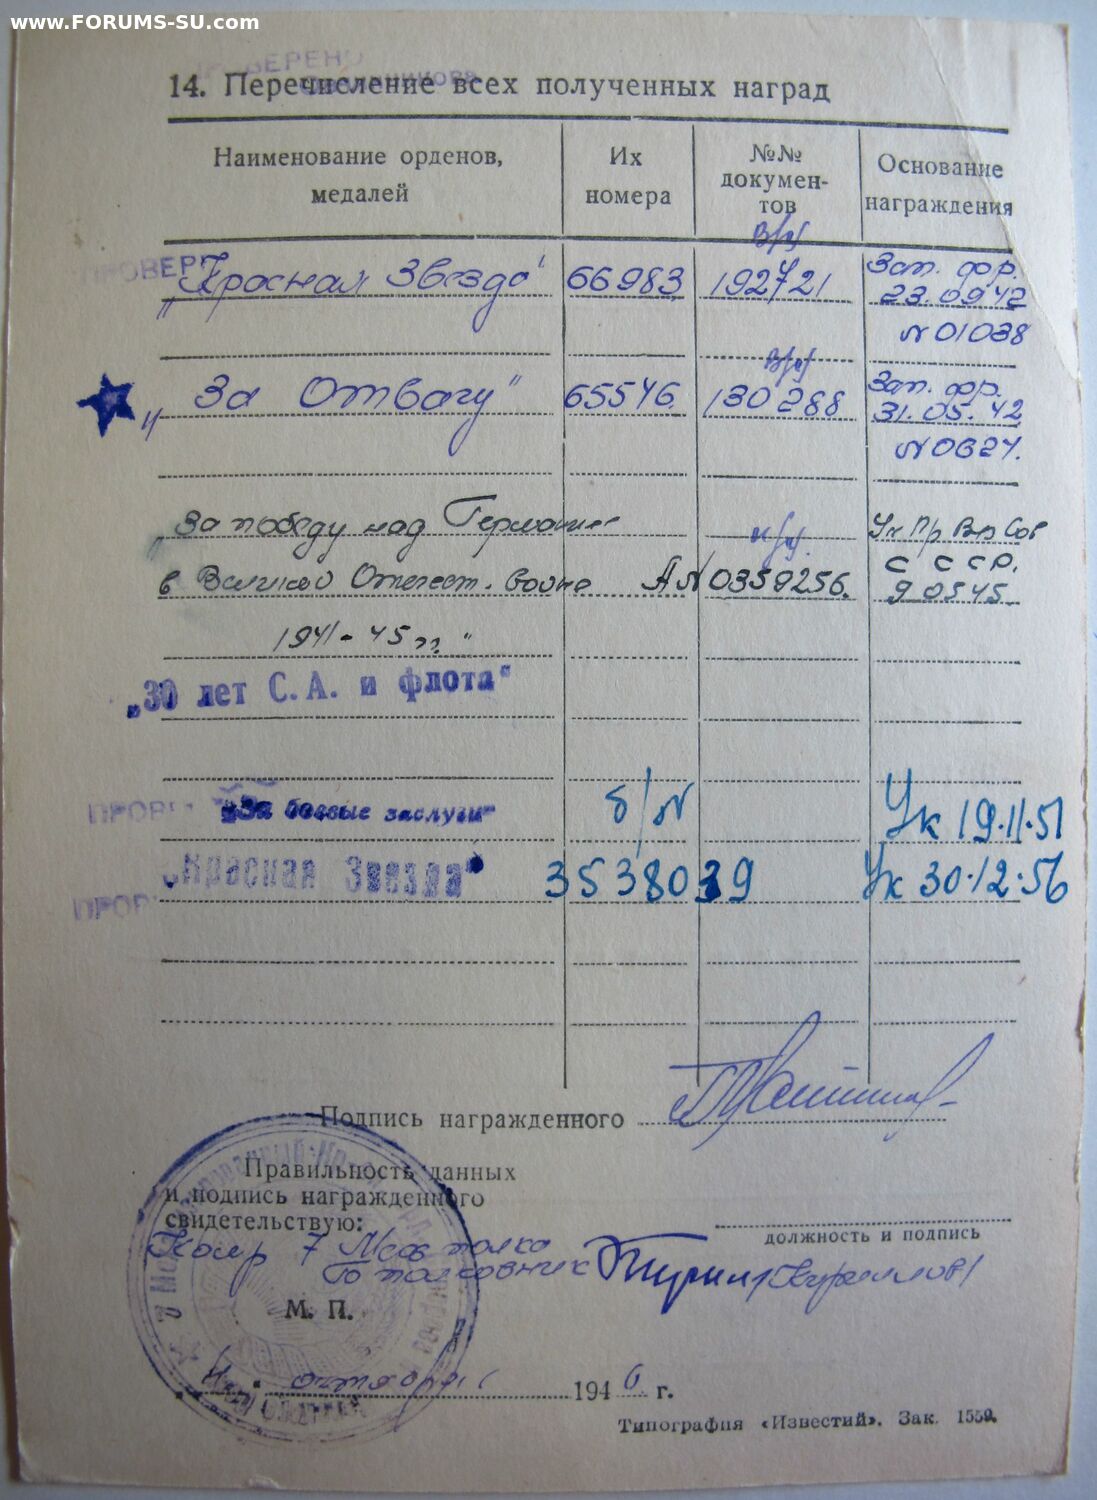 www.FORUMS-SU.com
14. Перечисление всех полученных наград
Наименование орденов, медалей
Их номера
№№ докумен-тов
Основание награждения
в/н
„Красная Звезда" 66983 192721 Зап. фр. 23.09.42
N 01038
в/н
„За Отвагу" 65546 130288 Зап. фр. 31.05.42
N 0624.
„За победу над Германией Ук Пр Вр Сов
в Великой Отечест. войне А N 0359256. СССР. 9 05 45
1941-45 гг."
„30 лет С. А. и флота"
„За боевые заслуги" б/N Ук 19.11.51
„Красная Звезда" 3538039 Ук 30.12.56
Подпись награжденного
Правильность данных
и подпись награжденного
свидетельствую:
должность и подпись
Комр 7 полка
Подполковник
М. П.
октября 1946 г.
Типография «Известий». Зак. 1559.